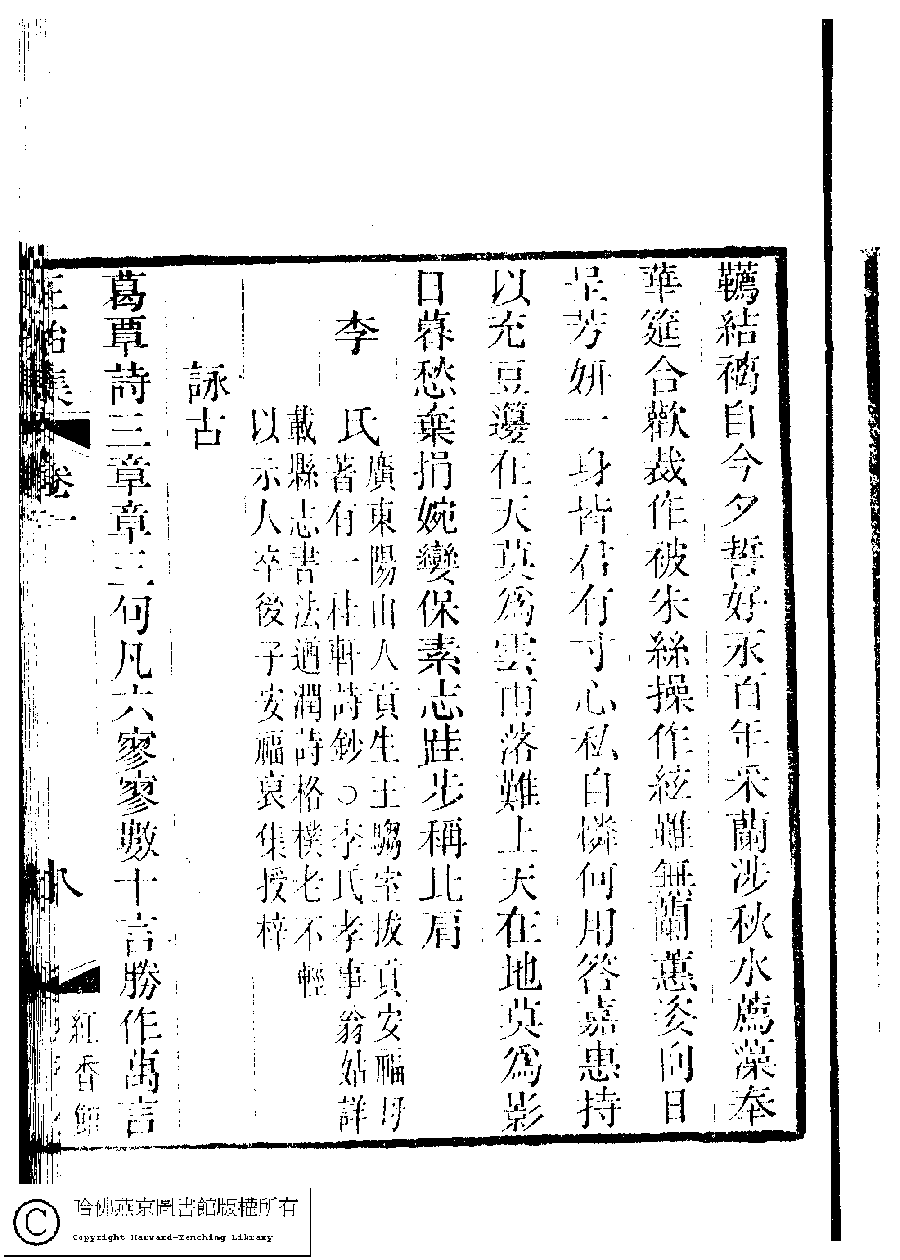 鞲結褵自今夕誓好永百年采蘭涉秋水薦藻奉
華筵合歡裁作被朱絲操作絃雖無蘭蕙姿向日
呈芳妍一身皆君有寸心私自憐何用答嘉惠持
以充豆籩在天莫為雲雨落難上天在地莫為影
日暮愁棄捐婉孌保素志跬步稱比肩
李氏
廣東陽山人貢生王騶室拔貢安福母
著有一桂軒詩鈔○李氏孝事翁姑詳
載縣志書法遒潤詩格樸老不輕
以示人卒後子安福裒集授梓
詠古
葛覃詩三章章三何凡六寥寥數十言勝作萬言
正始集 卷一 八
紅香館